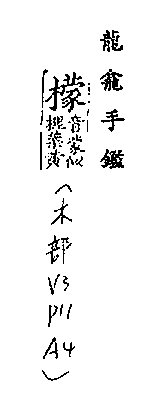 龍龕手鑑
檬音蒙似
槐葉黃
(木部
V3
P11
A4)